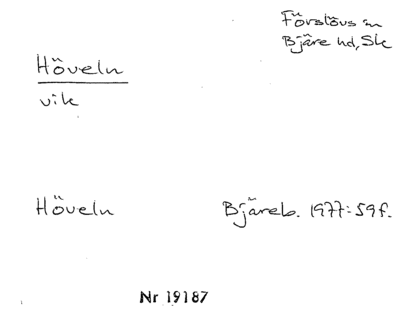 Förslövs sn
Bjäre hd, Sk
Höveln
vik
Höveln Bjäreb. 1977:59f.
Nr 19187